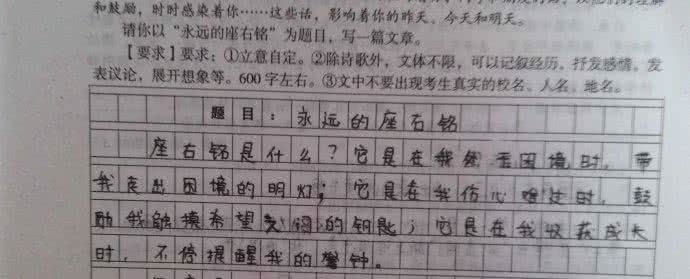 和鼓励，时时感染着你……这些话，影响着你的昨天、今天和明天。
请你以“永远的座右铭”为题目，写一篇文章。
【要求】要求：①立意自定。②除诗歌外，文体不限，可以记叙经历，抒发感情，发
表议论，展开想象等。600字左右。③文中不要出现考生真实的校名、人名、地名。
题目：永远的座右铭
座右铭是什么？它是在我身至困境时，带
我走出困境的明灯；它是在我伤心难过时，鼓
励我触摸希望之门的钥匙；它是在我收获成长
时，不停提醒我的警钟。